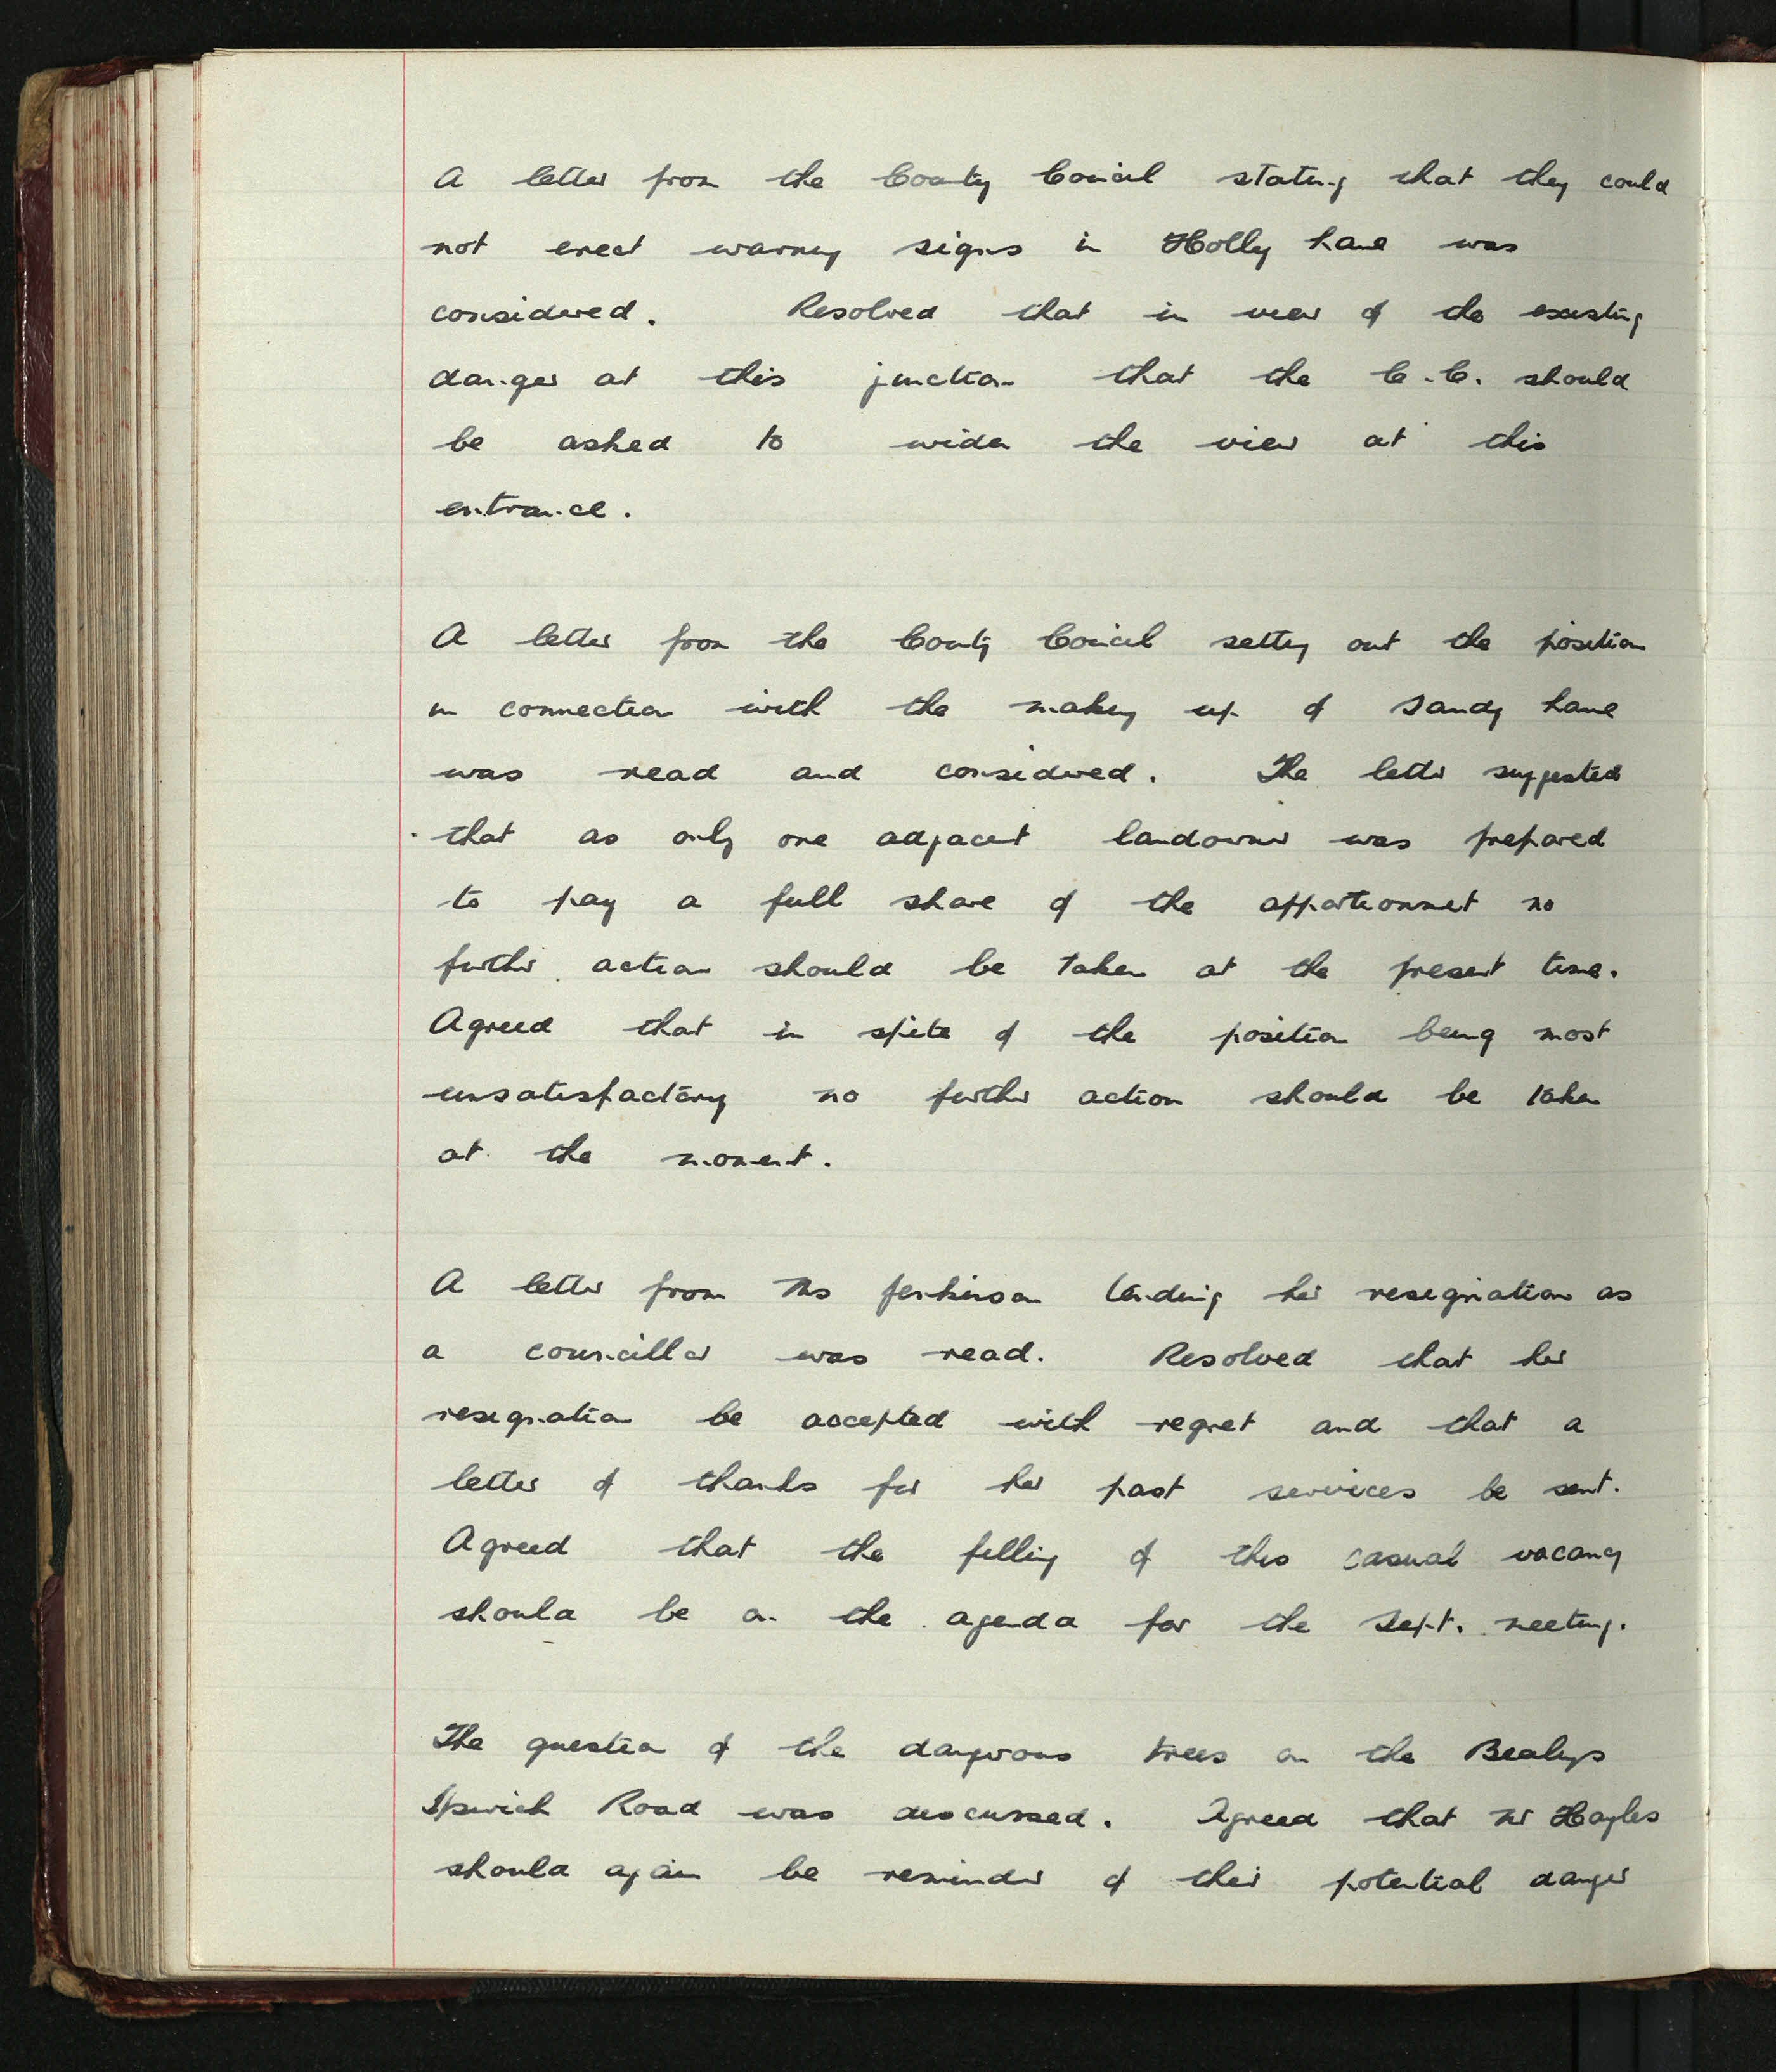 A letter from the County Council stating that they could
not erect warning signs in Holly Lane was
considered. Resolved that in view of the existing
danger at this junction that the C.C. should
be asked to widen the view at this
entrance.
A letter from the County Council setting out the position
in connection with the making up of Sandy Lane
was read and considered. The letter suggested
that as only one adjacent landowner was prepared
to pay a full share of the apportionment no
further action should be taken at the present time.
Agreed that in spite of the position being most
unsatisfactory no further action should be taken
at the moment.
A letter from Mrs Jenkinson tending her resignation as
a councillor was read. Resolved that her
resignation be accepted with regret and that a
letter of thanks for her past services be sent.
Agreed that the filling of this casual vacancy
should be on the agenda for the Sept. meeting.
The question of the dangerous trees on the Bealings
Ipswich Road was discussed. Agreed that Mr Hayles
should again be reminder of their potential danger